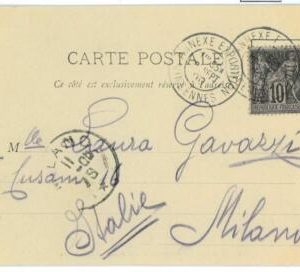 CARTE POSTALE
Ce côté est exclusivement réservé à l'adresse
ANNEXE EXPORT
10
M lle Laura Gavazzi
Cusani 16
Italie Milano